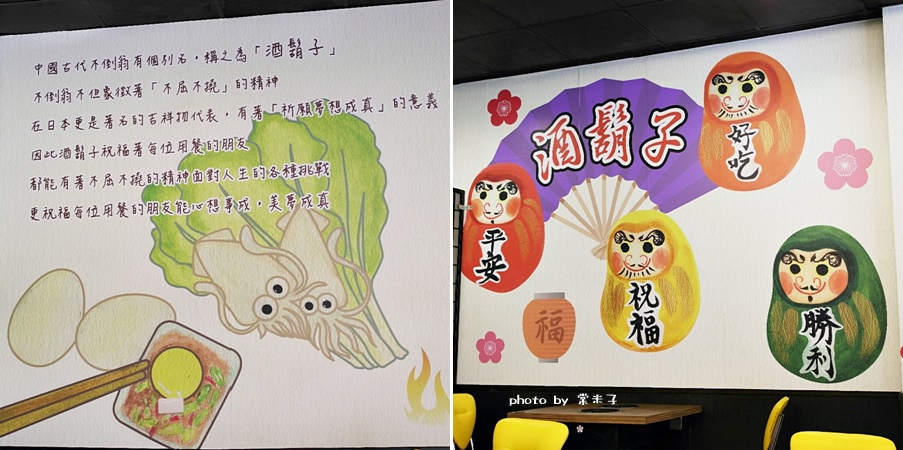 中國古代不倒翁有個別名，稱之為「酒鬍子」
不倒翁不但象徵著「不屈不撓」的精神
在日本更是著名的吉祥物代表，有著「祈願夢想成真」的意義
因此酒鬍子祝福著每位用餐的朋友
都能有著不屈不撓的精神面對人生的各種挑戰
更祝福每位用餐的朋友能心想事成，美夢成真
酒鬍子
好吃
平安
祝福
福
勝利
photo by 棠半子